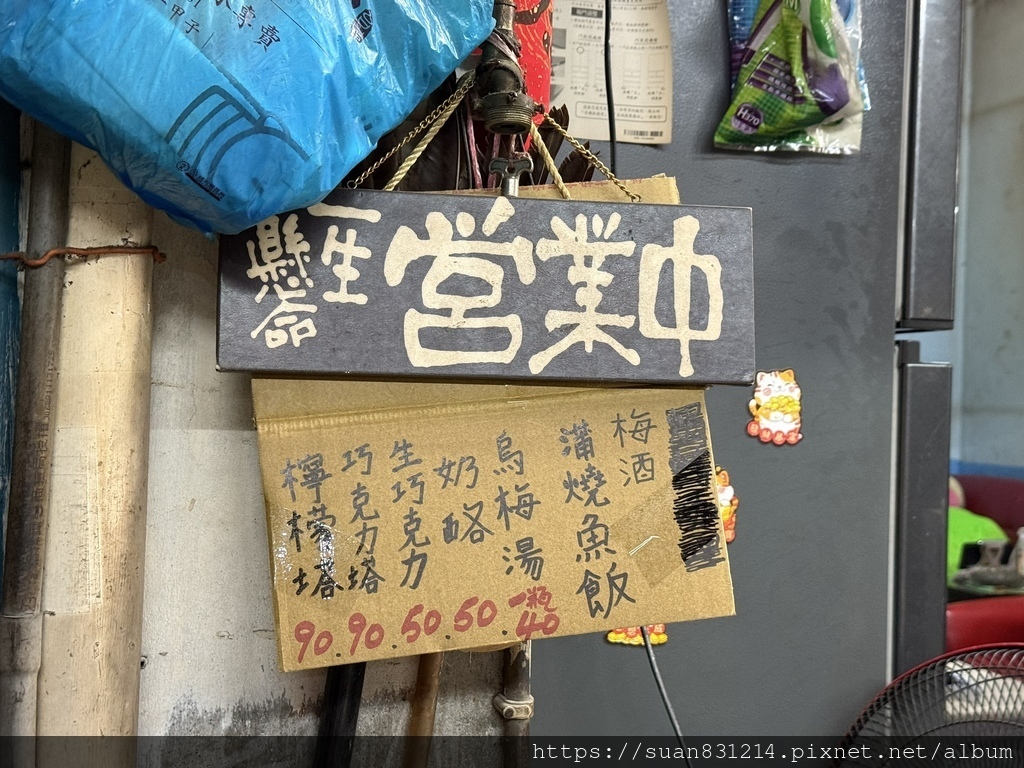 一生懸命
営業中
梅酒
蒲燒魚飯
烏梅湯 一瓶40
奶酪 50
生巧克力 50
巧克力塔 90
檸檬塔 90
H370
https://suan831214.pixnet.net/album